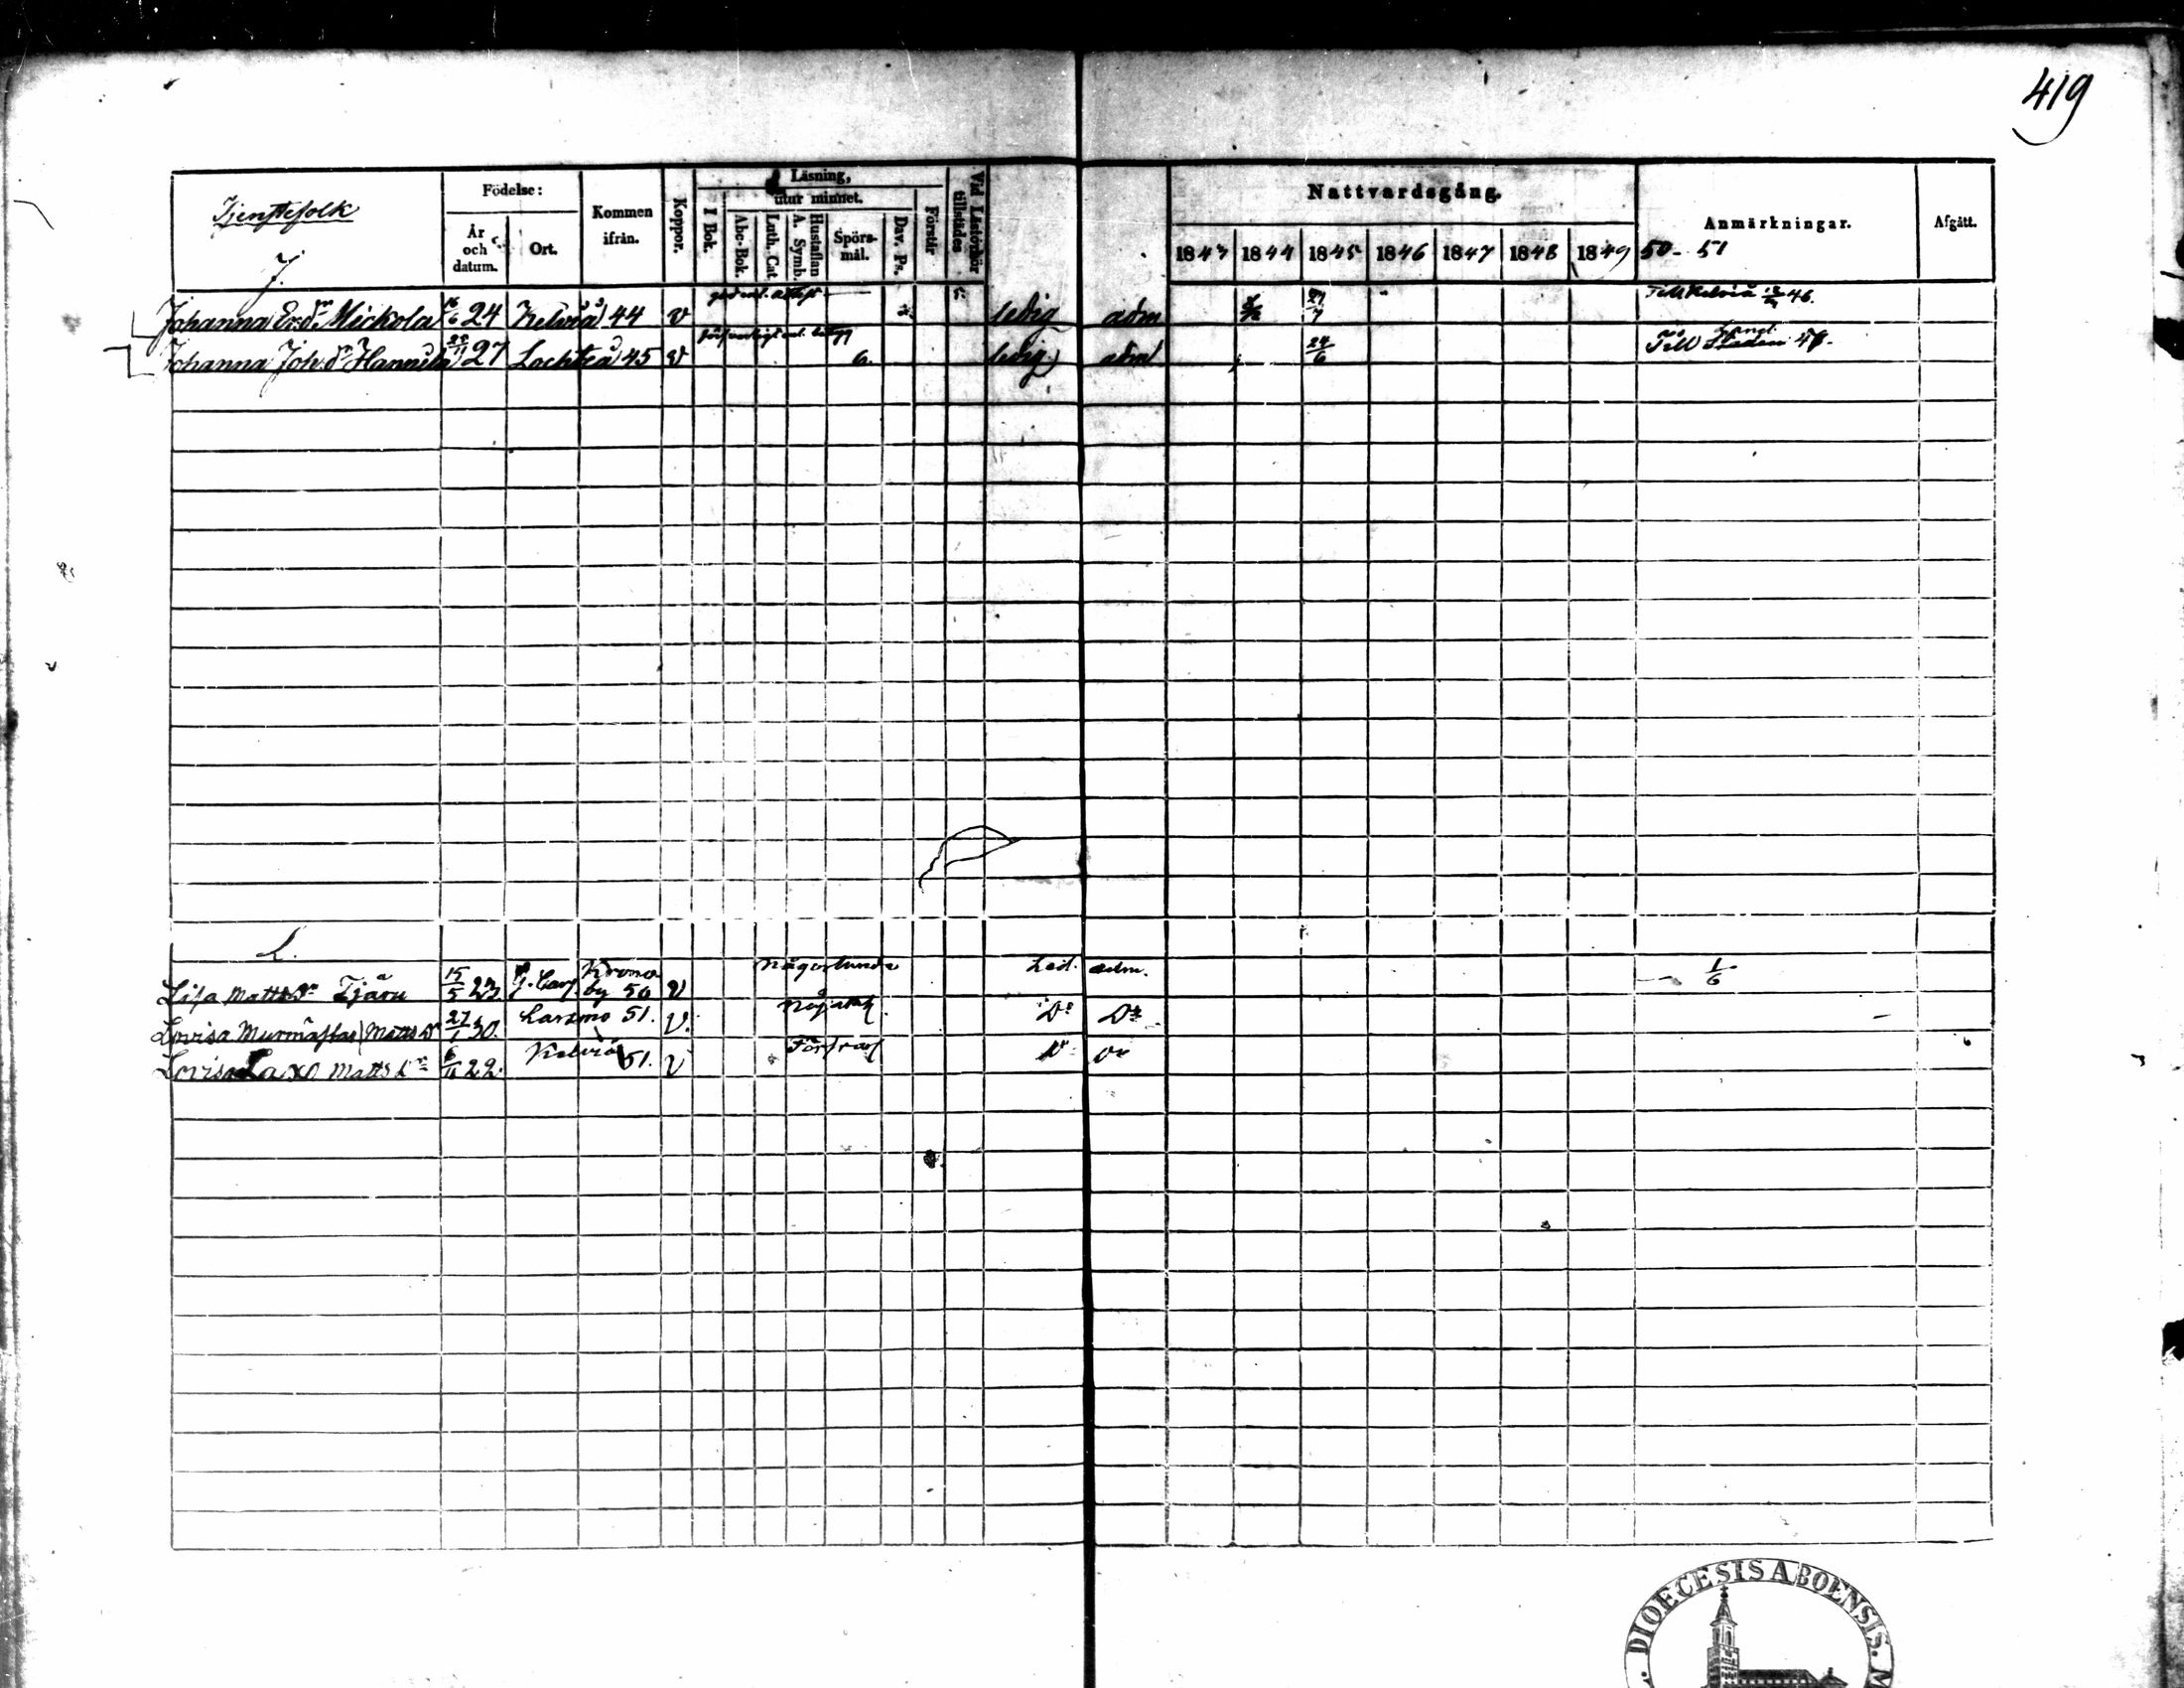 419
Tjenstefolk
Födelse:
År och datum.
Ort.
Kommen ifrån.
Koppor.
Läsning,
utur minnet.
I Bok.
Abc-Bok.
Luth. Cat.
A. Symb.
Hustaflan
Spörs-mål.
Dav. Ps.
Förstår
Vid Läsförhör tillstädes
Nattvardsgång.
1843 1844 1845 1846 1847 1848 1849 50-51
Anmärkningar.
Afgått.
J.
Johanna Er.dr Mickola 16/6 24 Kelviå 44 v ledig adm 27/7 Till Kelviå 46.
Johanna Joh.dr Hannula 27 Lochteå 45 v 6. ledig adm 24/6 Till Staden
L.
Lisa Mattsdr Tjäru 15/5 23. G. Carl. Kronoby 50 v någorlunda Led. adm. 1/6
Lovisa Mattsdr 27/1 30. Larsmo 51. v. Do Do
Lovisa Laxo Matts dr 22. Kelviå 51. v Do Do
DIOECESIS ABOENSIS.